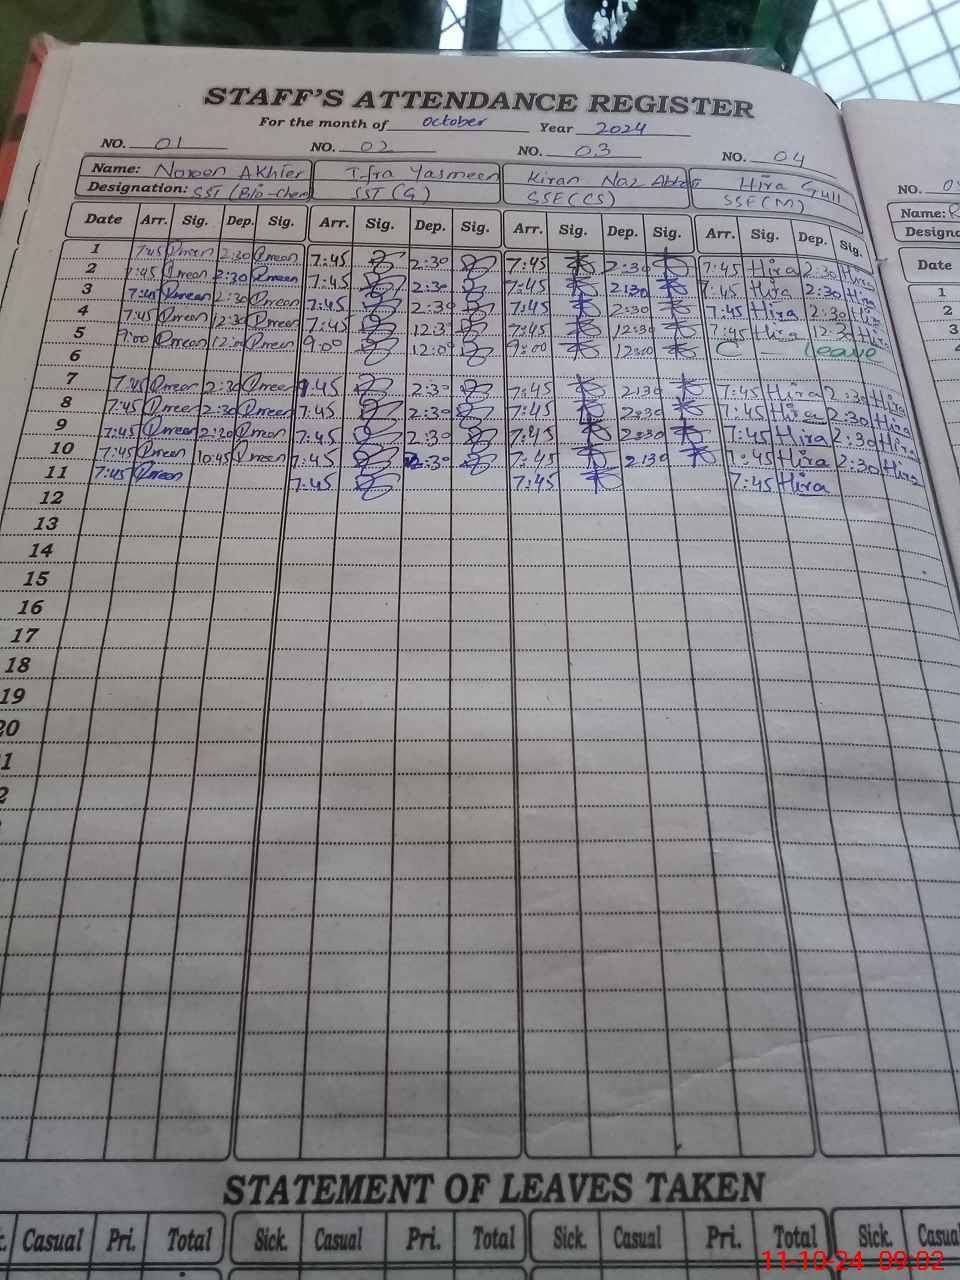 STAFF'S ATTENDANCE REGISTER
For the month of October Year 2024
NO. 01 NO. 02 NO. 03 NO. 04
Name: Noreen Akhter Ifra Yasmeen Kiran Naz Hira Gull
Designation: SST (Bio-Chem) SST (G) SSE (CS) SSE (M)
Date Arr. Sig. Dep. Sig. Arr. Sig. Dep. Sig. Arr. Sig. Dep. Sig. Arr. Sig. Dep. Sig.
1 7:45 2:30 7:45 2:30 7:45 2:30 7:45 Hira 2:30 Hira
2 7:45 2:30 7:45 2:30 7:45 2:30 7:45 Hira 2:30 Hira
3 7:45 2:30 7:45 2:30 7:45 2:30 7:45 Hira 2:30 Hira
4 7:45 12:30 7:45 12:30 7:45 12:30 7:45 Hira 12:30 Hira
5 9:00 12:00 9:00 12:00 9:00 12:00 C — Leave
6
7 7:45 2:30 7:45 2:30 7:45 2:30 7:45 Hira 2:30 Hira
8 7:45 2:30 7:45 2:30 7:45 2:30 7:45 Hira 2:30 Hira
9 7:45 2:20 7:45 2:30 7:45 2:30 7:45 Hira 2:30 Hira
10 7:45 10:45 7:45 2:30 7:45 2:30 7:45 Hira 2:30 Hira
11 7:45 7:45 7:45 7:45 Hira
12
13
14
15
16
17
18
19
20
1
2
STATEMENT OF LEAVES TAKEN
Casual Pri. Total Sick. Casual Pri. Total Sick. Casual Pri. Total Sick. Casua
11-10-24 09:02
NO.
Name: R
Designa
Date
1
2
3
4